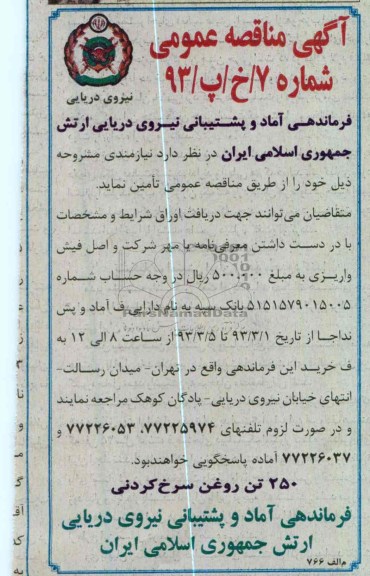 آگهی مناقصه عمومی
شماره ۷/خ/پ/۹۳
نیروی دریایی
فرماندهی آماد و پشتیبانی نیروی دریایی ارتش
جمهوری اسلامی ایران در نظر دارد نیازمندی مشروحه
ذیل خود را از طریق مناقصه عمومی تأمین نماید.
متقاضیان می‌توانند جهت دریافت اوراق شرایط و مشخصات
با در دست داشتن معرفی‌نامه با مهر شرکت و اصل فیش
واریزی به مبلغ ۵۰۰,۰۰۰ ریال در وجه حساب شماره
۵۱۵۱۵۷۹۰۱۵۰۰۵ بانک سپه به نام دارایی ف آماد و پش
نداجا از تاریخ ۹۳/۳/۱ تا ۹۳/۳/۵ از ساعت ۸ الی ۱۲ به
ف خرید این فرماندهی واقع در تهران- میدان رسالت-
انتهای خیابان نیروی دریایی- پادگان کوهک مراجعه نمایند
و در صورت لزوم تلفنهای ۷۷۲۲۵۹۷۴، ۷۷۲۲۶۰۵۳ و
۷۷۲۲۶۰۳۷ آماده پاسخگویی خواهندبود.
۲۵۰ تن روغن سرخ‌کردنی
فرماندهی آماد و پشتیبانی نیروی دریایی
ارتش جمهوری اسلامی ایران
م‌الف ۷۶۶